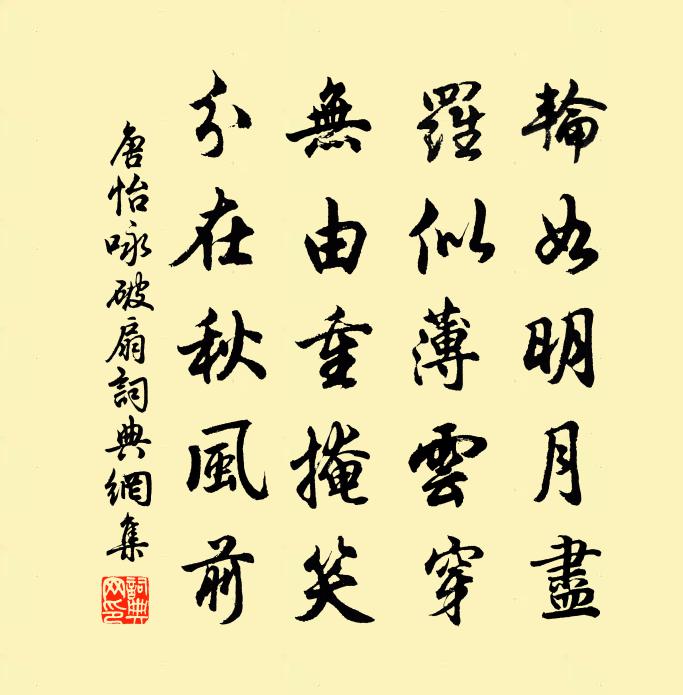 輪如明月盡
羅似薄雲穿
無由重掩笑
分在秋風前
唐怡咏破扇詞典網集
詞典網印